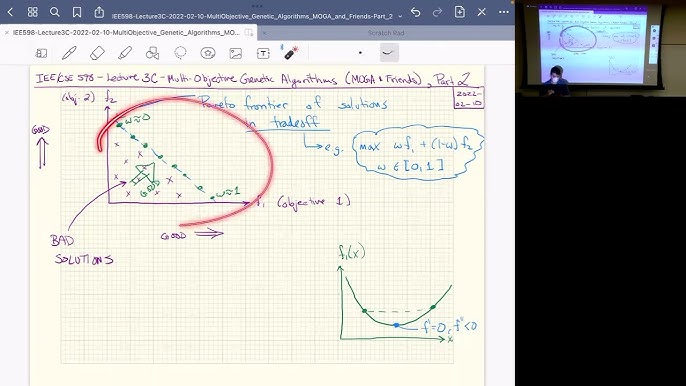 IEE598-Lecture3C-2022-02-10-MultiObjective_Genetic_Algorithms_MOGA_and_Friends-Part_2
IEE598-Lecture3C-2022-02-10-MultiObjective_Genetic_Algorithms_MO...
Scratch Rad
IEE/CSE 598 - Lecture 3C - Multi-Objective Genetic Algorithms (MOGA & Friends), Part 2
2022-
02-10
(obj. 2) f2
Pareto frontier of solutions
in tradeoff
e.g. max wf1 + (1-w) f2
w ∈ [0,1]
GOOD
w≈0
GOOD
w≈1
f1 (objective 1)
GOOD
BAD
SOLUTIONS
f1(x)
f'=0, f''<0
x